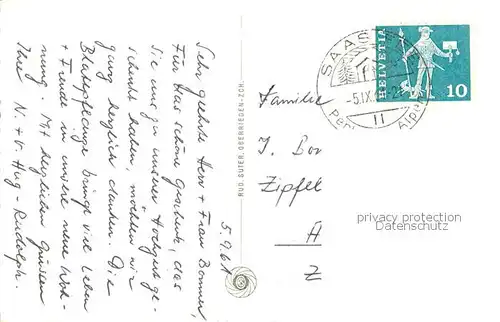 5.9.61
Sehr geehrte Herr + Frau Bonner,
Für das schöne Geschenk, das
Sie uns zu unserer Hochzeit ge-
schenkt haben, möchten wir
herzlich danken. Die
Blattpflanze bringt viel Leben
+ Freude in unsere neue Woh-
nung. Mit herzlichen Grüssen
Ihre N. + V. Hug-Rudolph.
RUD. SUTER, OBERRIEDEN-ZCH.
SAAS
-5.IX.
HELVETIA
10
Familie
J. Bor
Zipfel
A
Z
privacy protection
Datenschutz